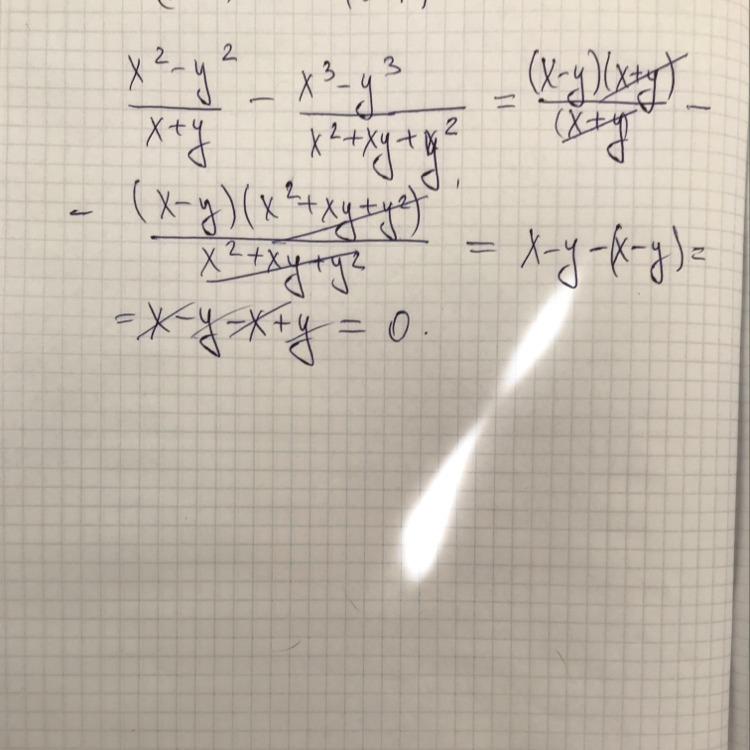 x² - y² / x + y - x³ - y³ / x² + xy + y² = (x-y)(x+y) / (x+y -
- (x-y)(x² + xy + y²) / x² + xy + y² = x-y-(x-y) =
= x - y - x + y = 0.